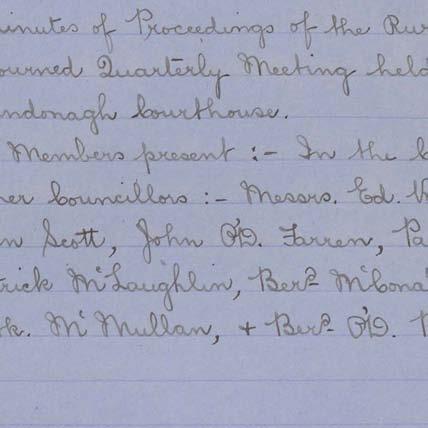 inutes of Proceedings of the Rur
ourned Quarterly Meeting held
ndonagh Courthouse.
Members present :- In the C
her Councillors :- Messrs. Ed.
n Scott, John O'D. Farren, Pa
trick McLaughlin, Berd McCona
k. Mc Mullan, + Berd O'D.